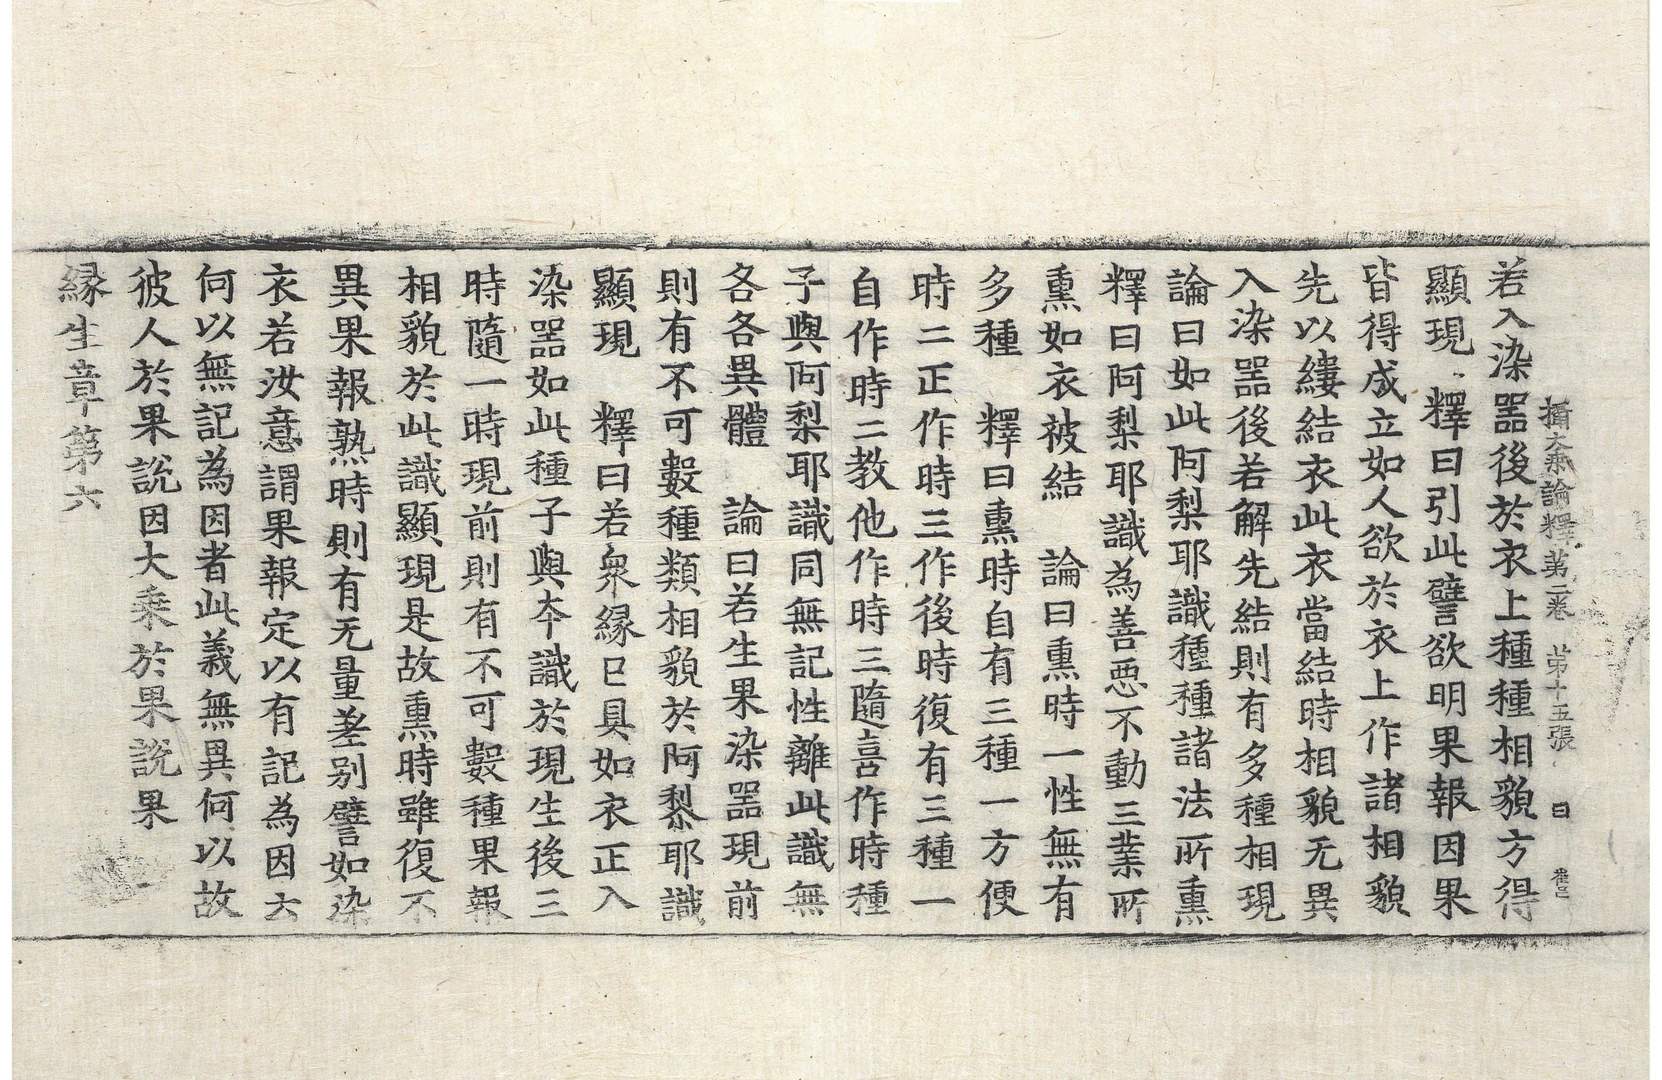 攝大乗論釋第二卷 第十五張 曰
若入染器後於衣上種種相貌方得
顯現 釋曰引此譬欲明果報因果
皆得成立如人欲於衣上作諸相貌
先以縷結衣此衣當結時相貌无異
入染器後若解先結則有多種相現
論曰如此阿梨耶識種種諸法所熏
釋曰阿梨耶識為善惡不動三業所
熏如衣被結 論曰熏時一性無有
多種 釋曰熏時自有三種一方便
時二正作時三作後時復有三種一
自作時二教他作時三隨喜作時種
子與阿梨耶識同無記性離此識無
各各異體 論曰若生果染器現前
則有不可數種類相貌於阿黎耶識
顯現 釋曰若衆緣已具如衣正入
染器如此種子與本識於現生後三
時隨一時現前則有不可數種果報
相貌於此識顯現是故熏時雖復不
異果報熟時則有无量差别譬如染
衣若汝意謂果報定以有記為因六
何以無記為因者此義無異何以故
彼人於果說因大乘於果說果
緣生章第六